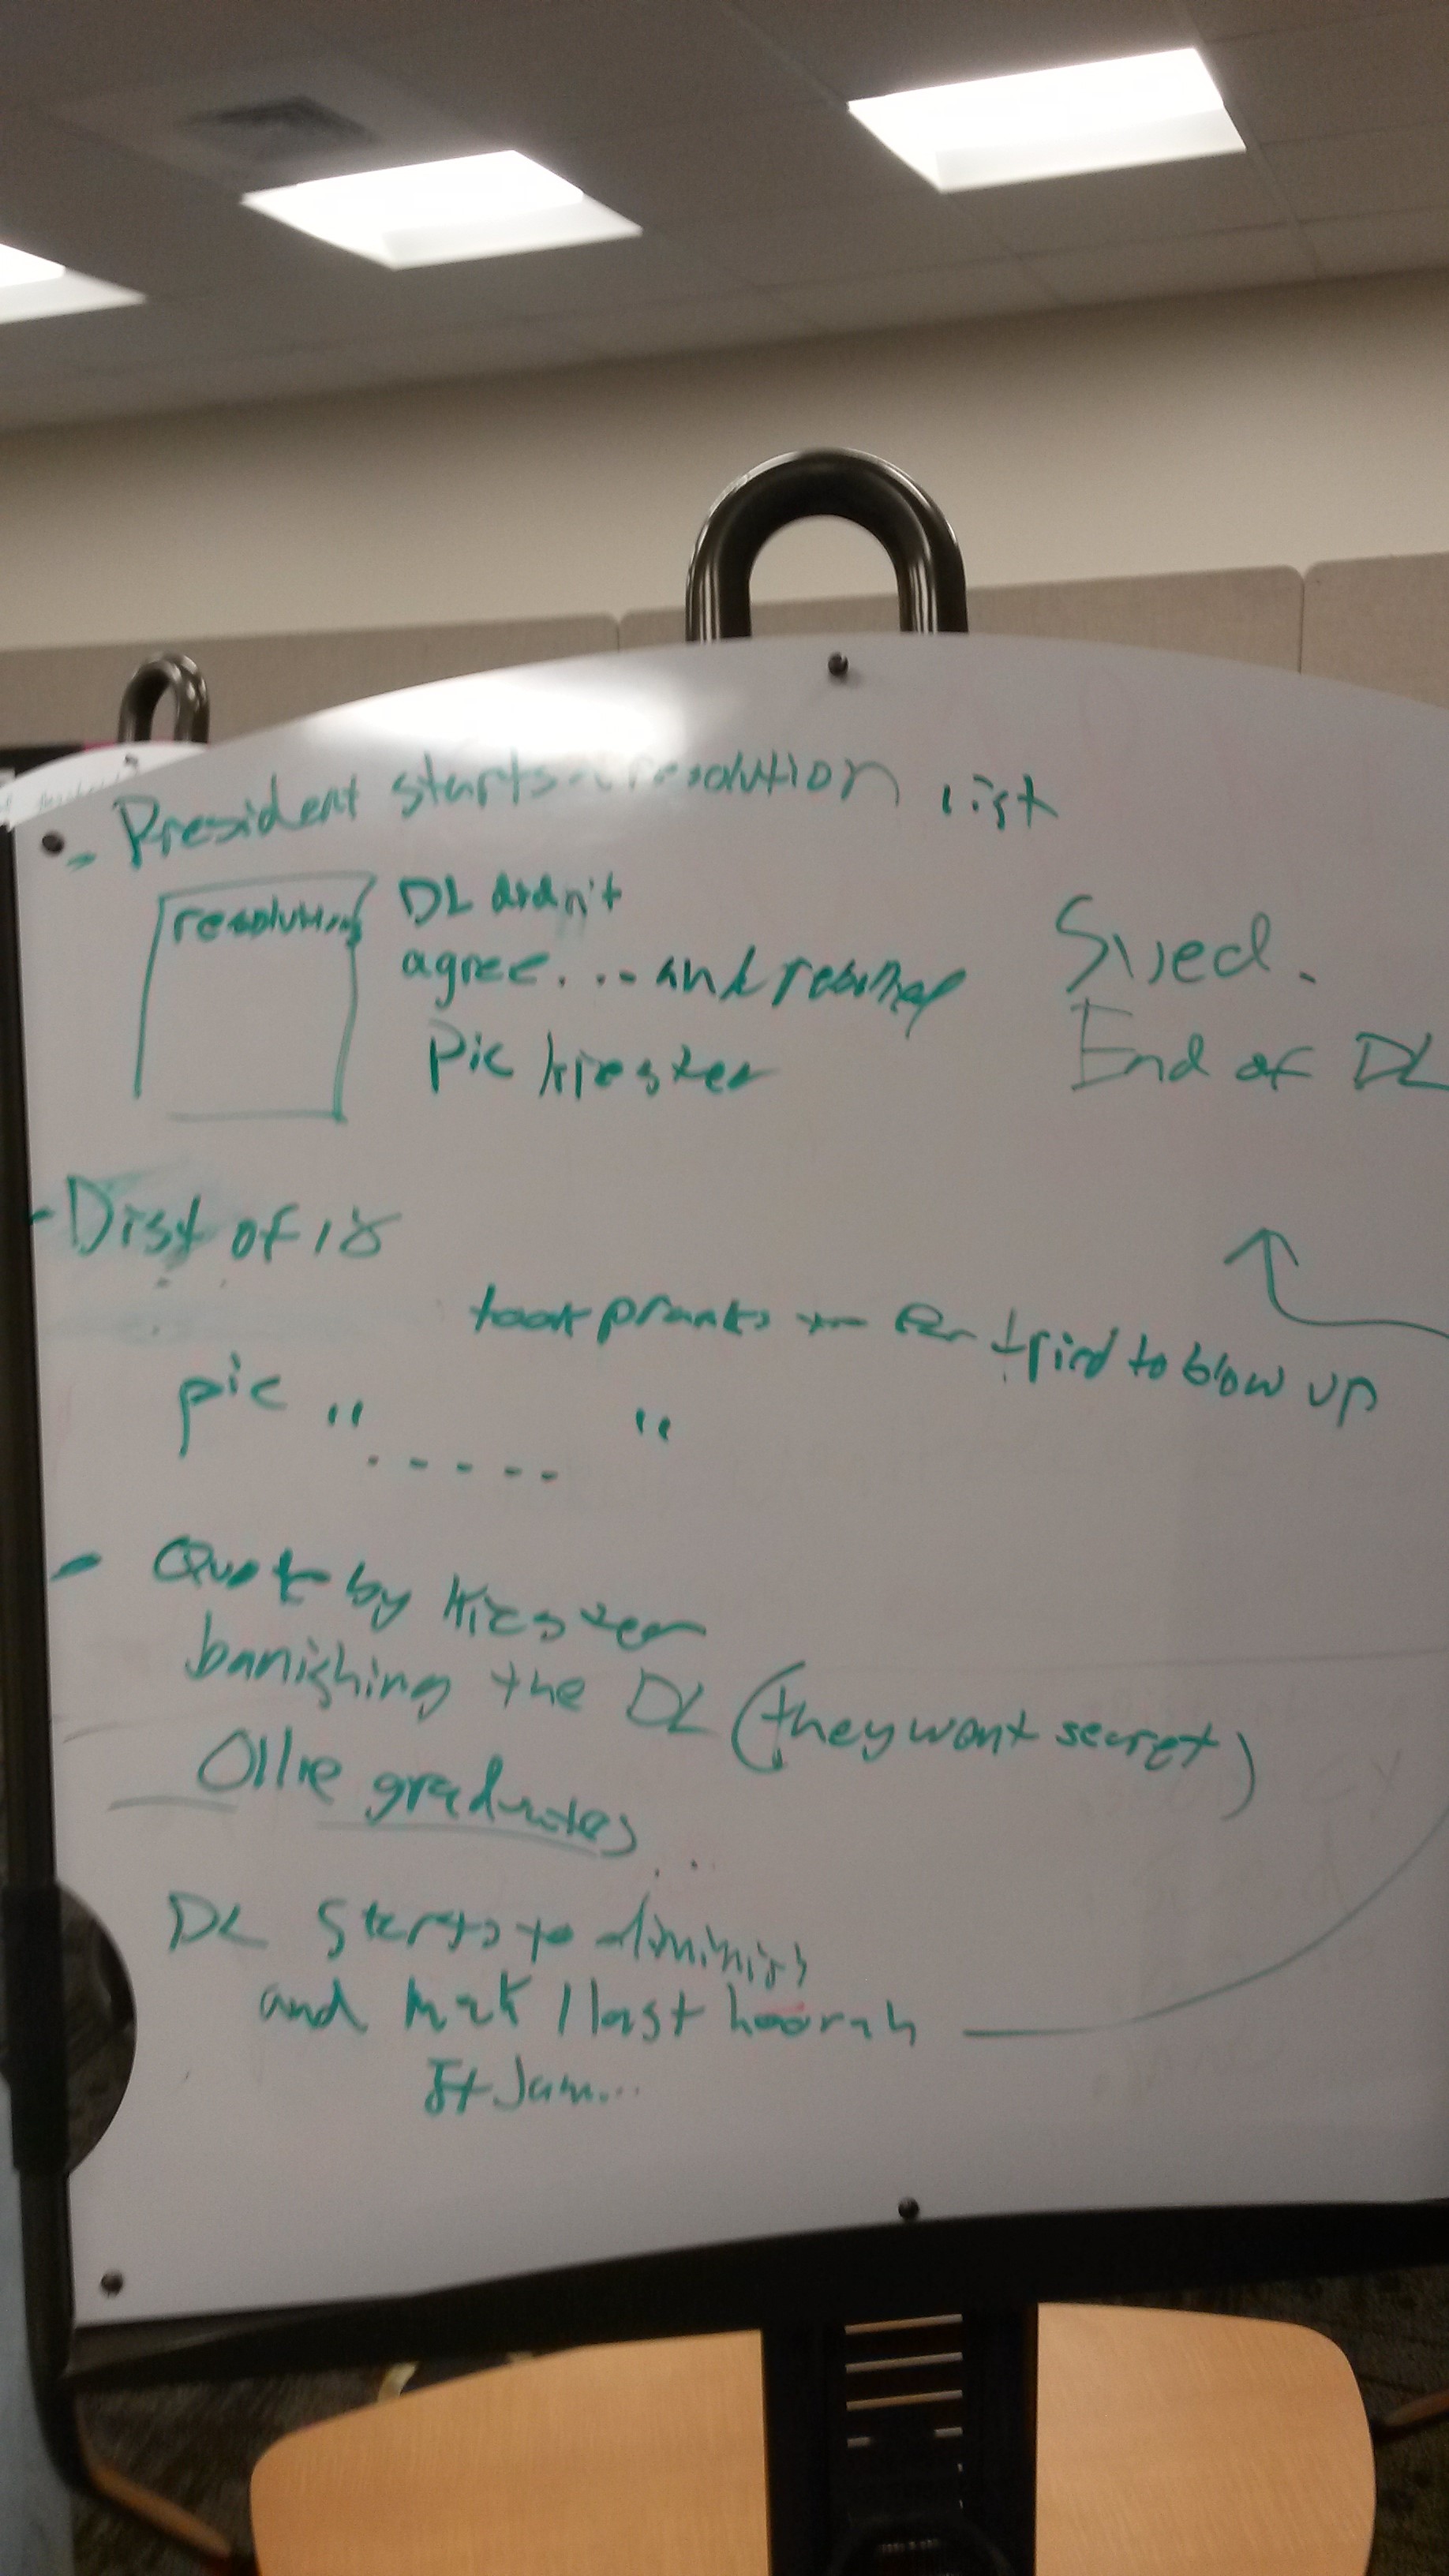 - President starts a resolution list
resolutions
DL didn't
agree.... and resigned
Pic Kiester
Sued.
End of DL
- Dist of 18
took pranks too far tried to blow up
pic "..... "
- Quote by Kiester
banishing the DL (they went secret)
Ollie graduates
DL starts to diminish
and mak 1 last hoorah
Jam...